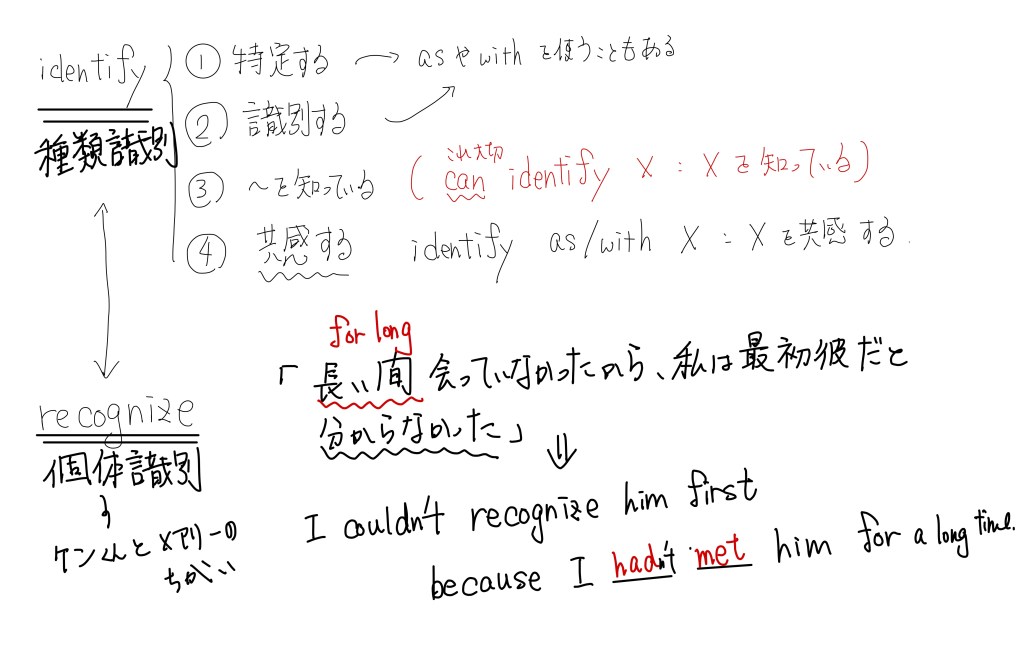 identify
種類識別
① 特定する → asやwithを使うこともある
② 識別する
③ ~を知っている (can identify X : Xを知っている)
これ大切
④ 共感する identify as/with X : Xを共感する.
for long
「長い間会っていなかったから、私は最初彼だと
分からなかった」
recognize
個体識別
ケンくんとメアリーの
ちがい
I couldn't recognize him first
because I hadn't met him for a long time.